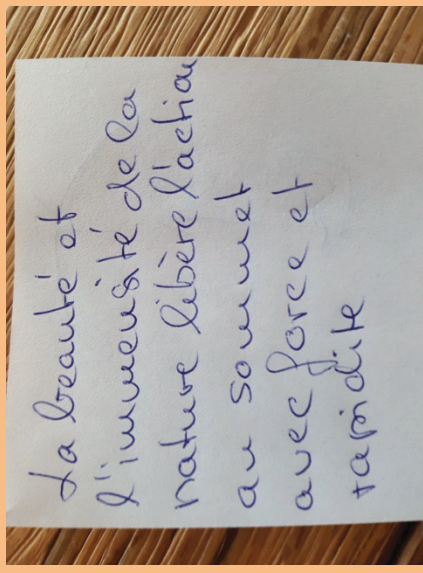 La beauté et
l'immensité de la
nature libère l'action
au sommet
avec force et
rapidite